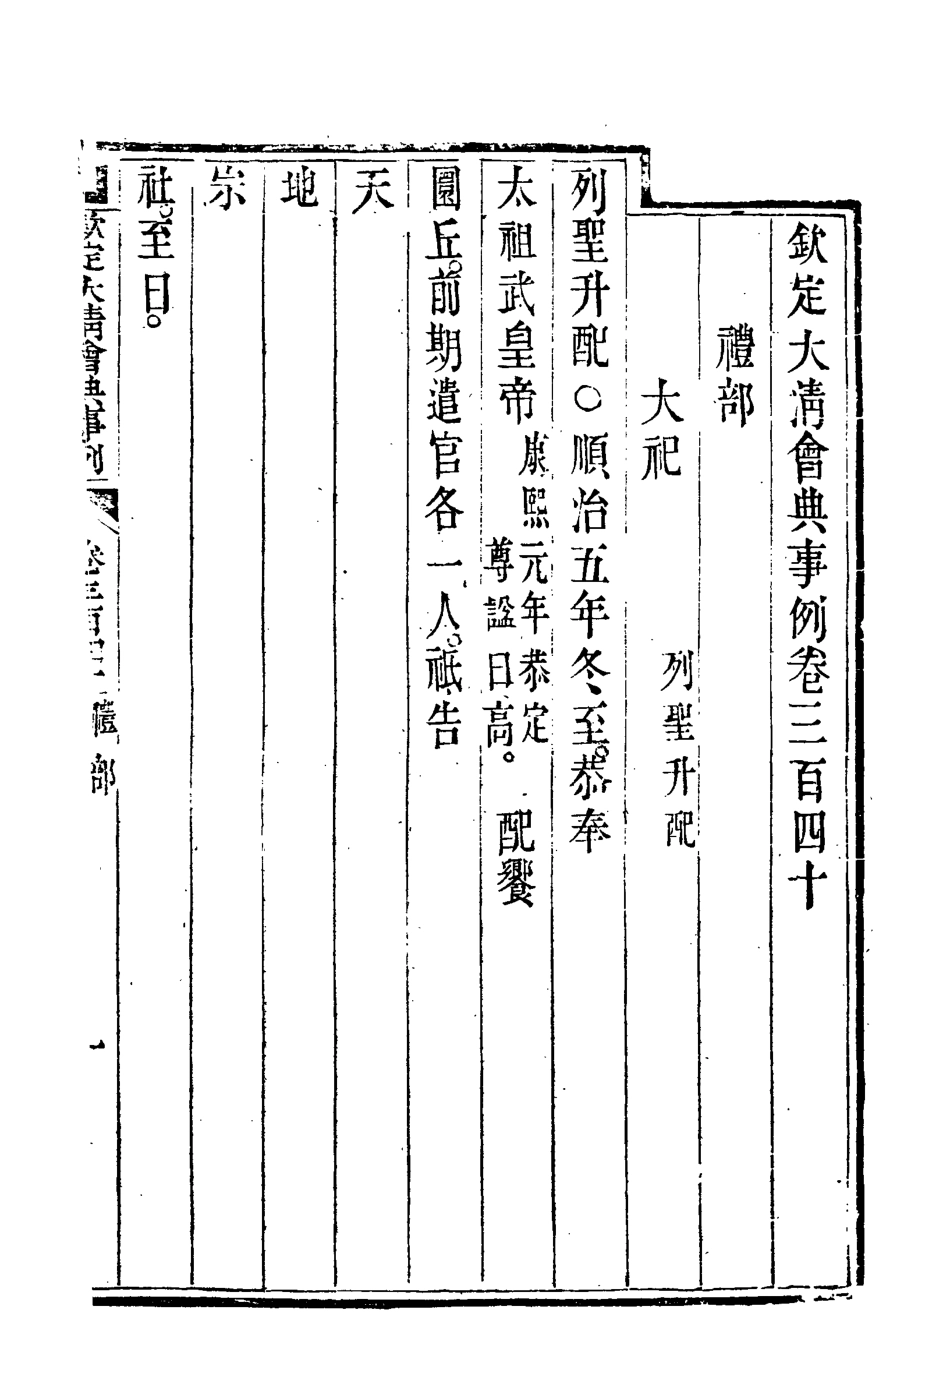 欽定大清會典事例卷三百四十
禮部
大祀 列聖升配
列聖升配○順治五年冬至。恭奉
太祖武皇帝康熙元年恭定尊諡日高。配饗
圜丘。前期遣官各一人。祗告
天
地
宗
社。至日。
欽定大清會典事例 卷三百四十 禮部 一